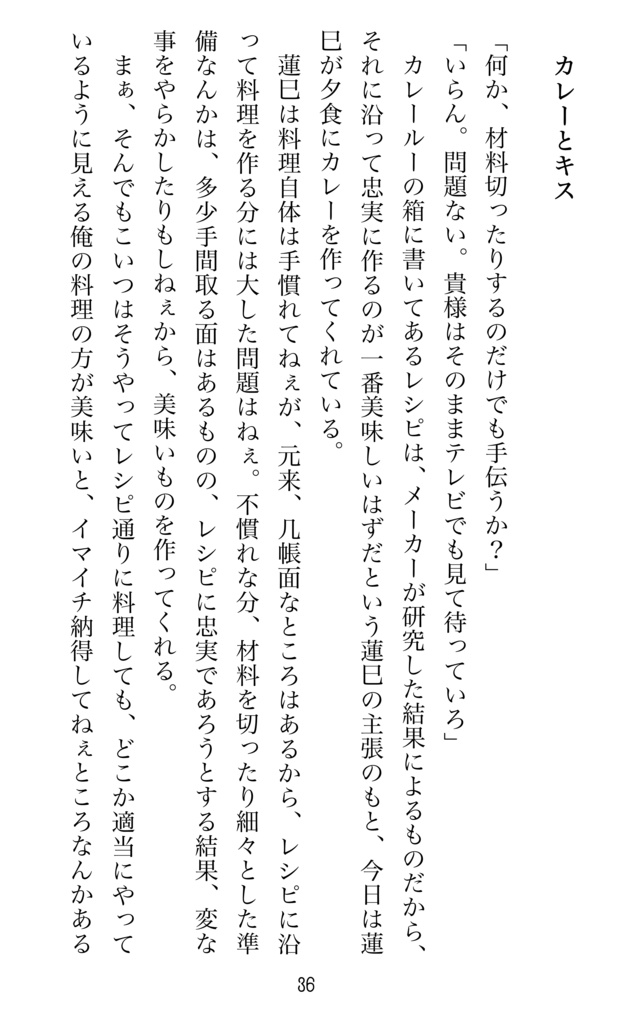 カレーとキス
「何か、材料切ったりするのだけでも手伝うか？」
「いらん。問題ない。貴様はそのままテレビでも見て待っていろ」
カレールーの箱に書いてあるレシピは、メーカーが研究した結果によるものだから、
それに沿って忠実に作るのが一番美味しいはずだという蓮巳の主張のもと、今日は蓮
巳が夕食にカレーを作ってくれている。
蓮巳は料理自体は手慣れてねぇが、元来、几帳面なところはあるから、レシピに沿
って料理を作る分には大した問題はねぇ。不慣れな分、材料を切ったり細々とした準
備なんかは、多少手間取る面はあるものの、レシピに忠実であろうとする結果、変な
事をやらかしたりもしねぇから、美味いものを作ってくれる。
まぁ、そんでもこいつはそうやってレシピ通りに料理しても、どこか適当にやって
いるように見える俺の料理の方が美味いと、イマイチ納得してねぇところなんかある
36